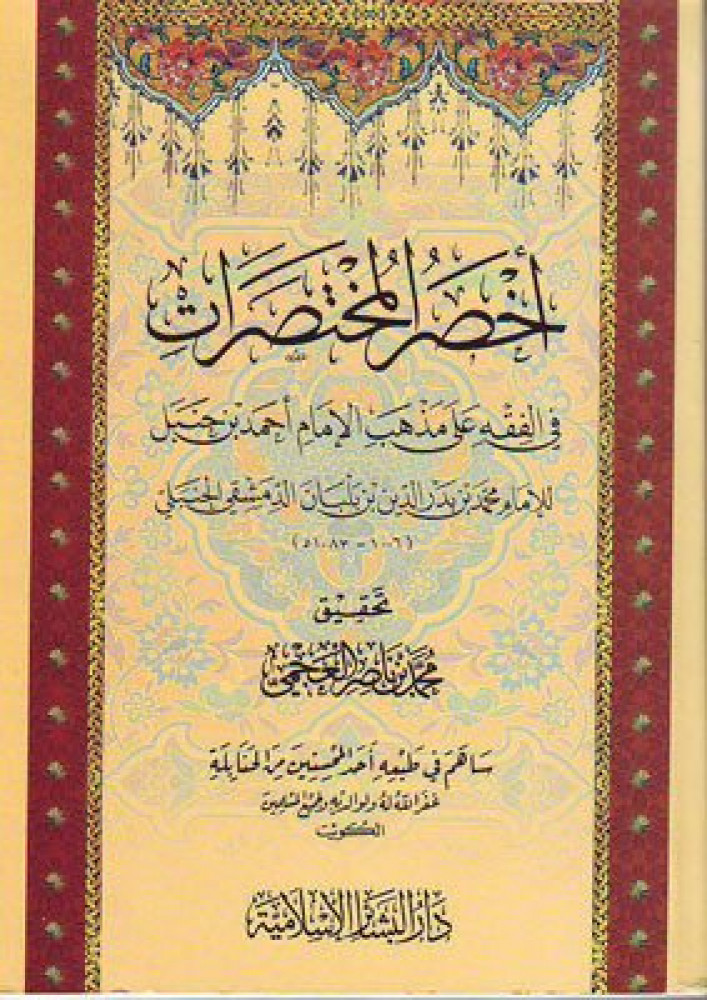 أَخْصَرُ المُخْتَصَرَاتِ
في الفقه على مذهب الإمام أحمد بن حنبل
للإمام محمد بن بدر الدين بن بلبان الدمشقي الحنبلي
(١٠٠٦ - ١٠٨٣ هـ)
تحقيق
محمد بن ناصر العجمي
ساهم في طبعه أحد المحسنين من الحنابلة
غفر الله له ولوالديه ولجميع المسلمين
الكويت
دار البشائر الإسلامية